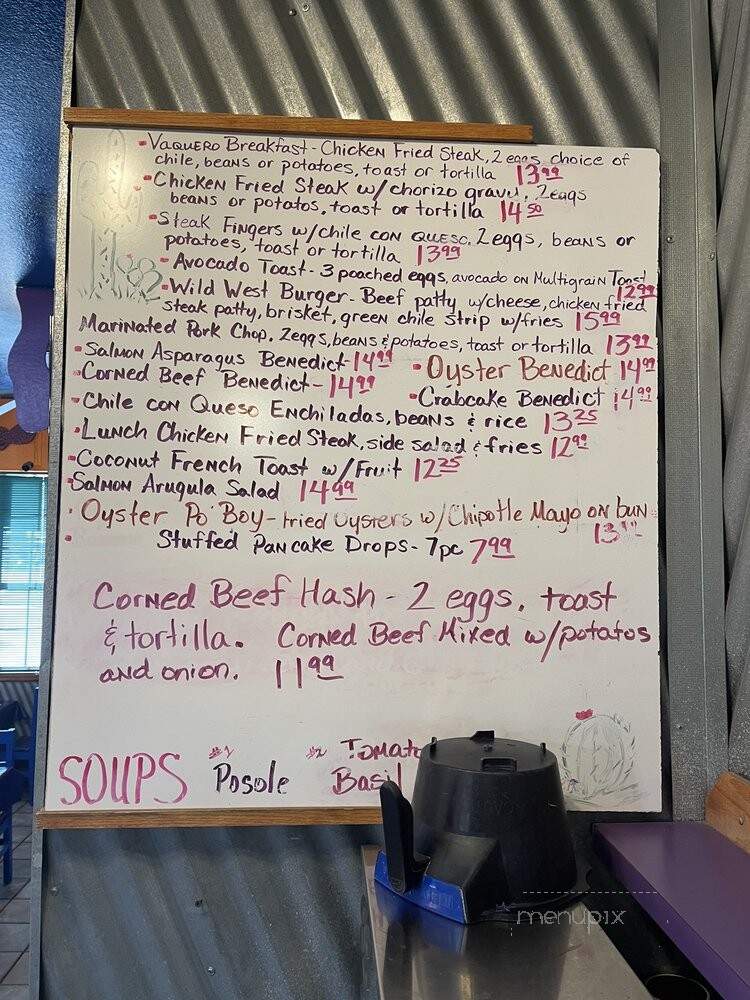 • Vaquero Breakfast - Chicken Fried Steak, 2 eggs choice of
chile, beans or potatoes, toast or tortilla 13 99
• Chicken Fried Steak w/ chorizo gravy, 2 eggs
beans or potatos, toast or tortilla 14 50
• Steak Fingers w/chile con queso, 2 eggs, beans or
potatoes, toast or tortilla 13 99
• Avocado Toast - 3 poached eggs, avocado on Multigrain Toast
12 99
• Wild West Burger - Beef patty w/cheese, chicken fried
steak patty, brisket, green chile strip w/fries 15 99
Marinated Pork Chop, 2 eggs, beans & potatoes, toast or tortilla 13 99
• Salmon Asparagus Benedict - 14 99 • Oyster Benedict 14 99
• Corned Beef Benedict - 14 99 • Crabcake Benedict 14 99
• Chile con Queso Enchiladas, beans & rice 13 25
• Lunch Chicken Fried Steak, side salad & fries 12 99
• Coconut French Toast w/Fruit 12 25
• Salmon Arugula Salad 14 99
• Oyster Po'Boy - fried oysters w/Chipotle Mayo on bun
13
• Stuffed Pancake Drops - 7pc 7 99
Corned Beef Hash - 2 eggs, toast
& tortilla. Corned Beef Mixed w/potatos
and onion. 11 99
SOUPS #1 Posole #2 Tomato Basil
menupix